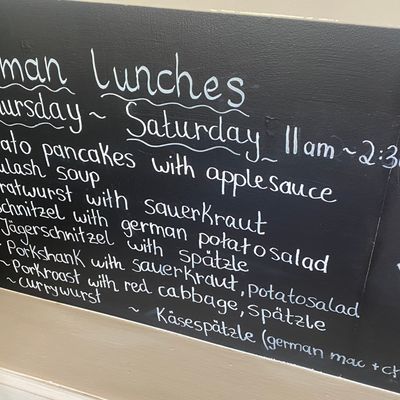 man Lunches
ursday ~ Saturday 11am ~ 2:3
ato pancakes with applesauce
ulash soup
ratwurst with sauerkraut
chnitzel with german potatosalad
Jägerschnitzel with spätzle
~ Porkshank with sauerkraut, potatosalad
~ Porkroast with red cabbage, spätzle
~ Currywurst ~ Käsespätzle (german mac + ch